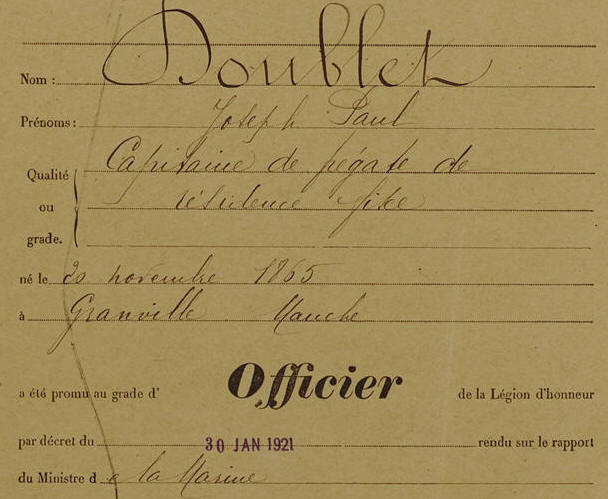 Nom : Doublet
Prénoms : Joseph Paul
Qualité ou grade. Capitaine de frégate de
résidence fixe
né le 20 novembre 1865
à Granville Manche
a été promu au grade d' Officier de la Légion d'honneur
par décret du 30 JAN 1921 rendu sur le rapport
du Ministre de la Marine